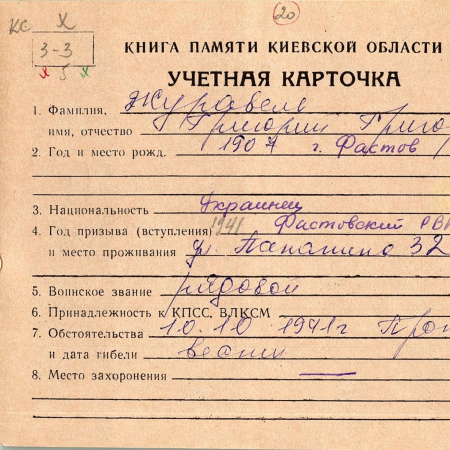 КС X 20
3-3
x 5 x
КНИГА ПАМЯТИ КИЕВСКОЙ ОБЛАСТИ
УЧЕТНАЯ КАРТОЧКА
1. Фамилия, Журавель
имя, отчество Григорий Григо
2. Год и место рожд. 1907 г. Фастов
3. Национальность Украинец
4. Год призыва (вступления) 1941 Фастовский РВ
и место проживания ул. Папанина 32
5. Воинское звание рядовой
6. Принадлежность к КПСС, ВЛКСМ
7. Обстоятельства 10.10 1941г Проп
и дата гибели вести
8. Место захоронения —